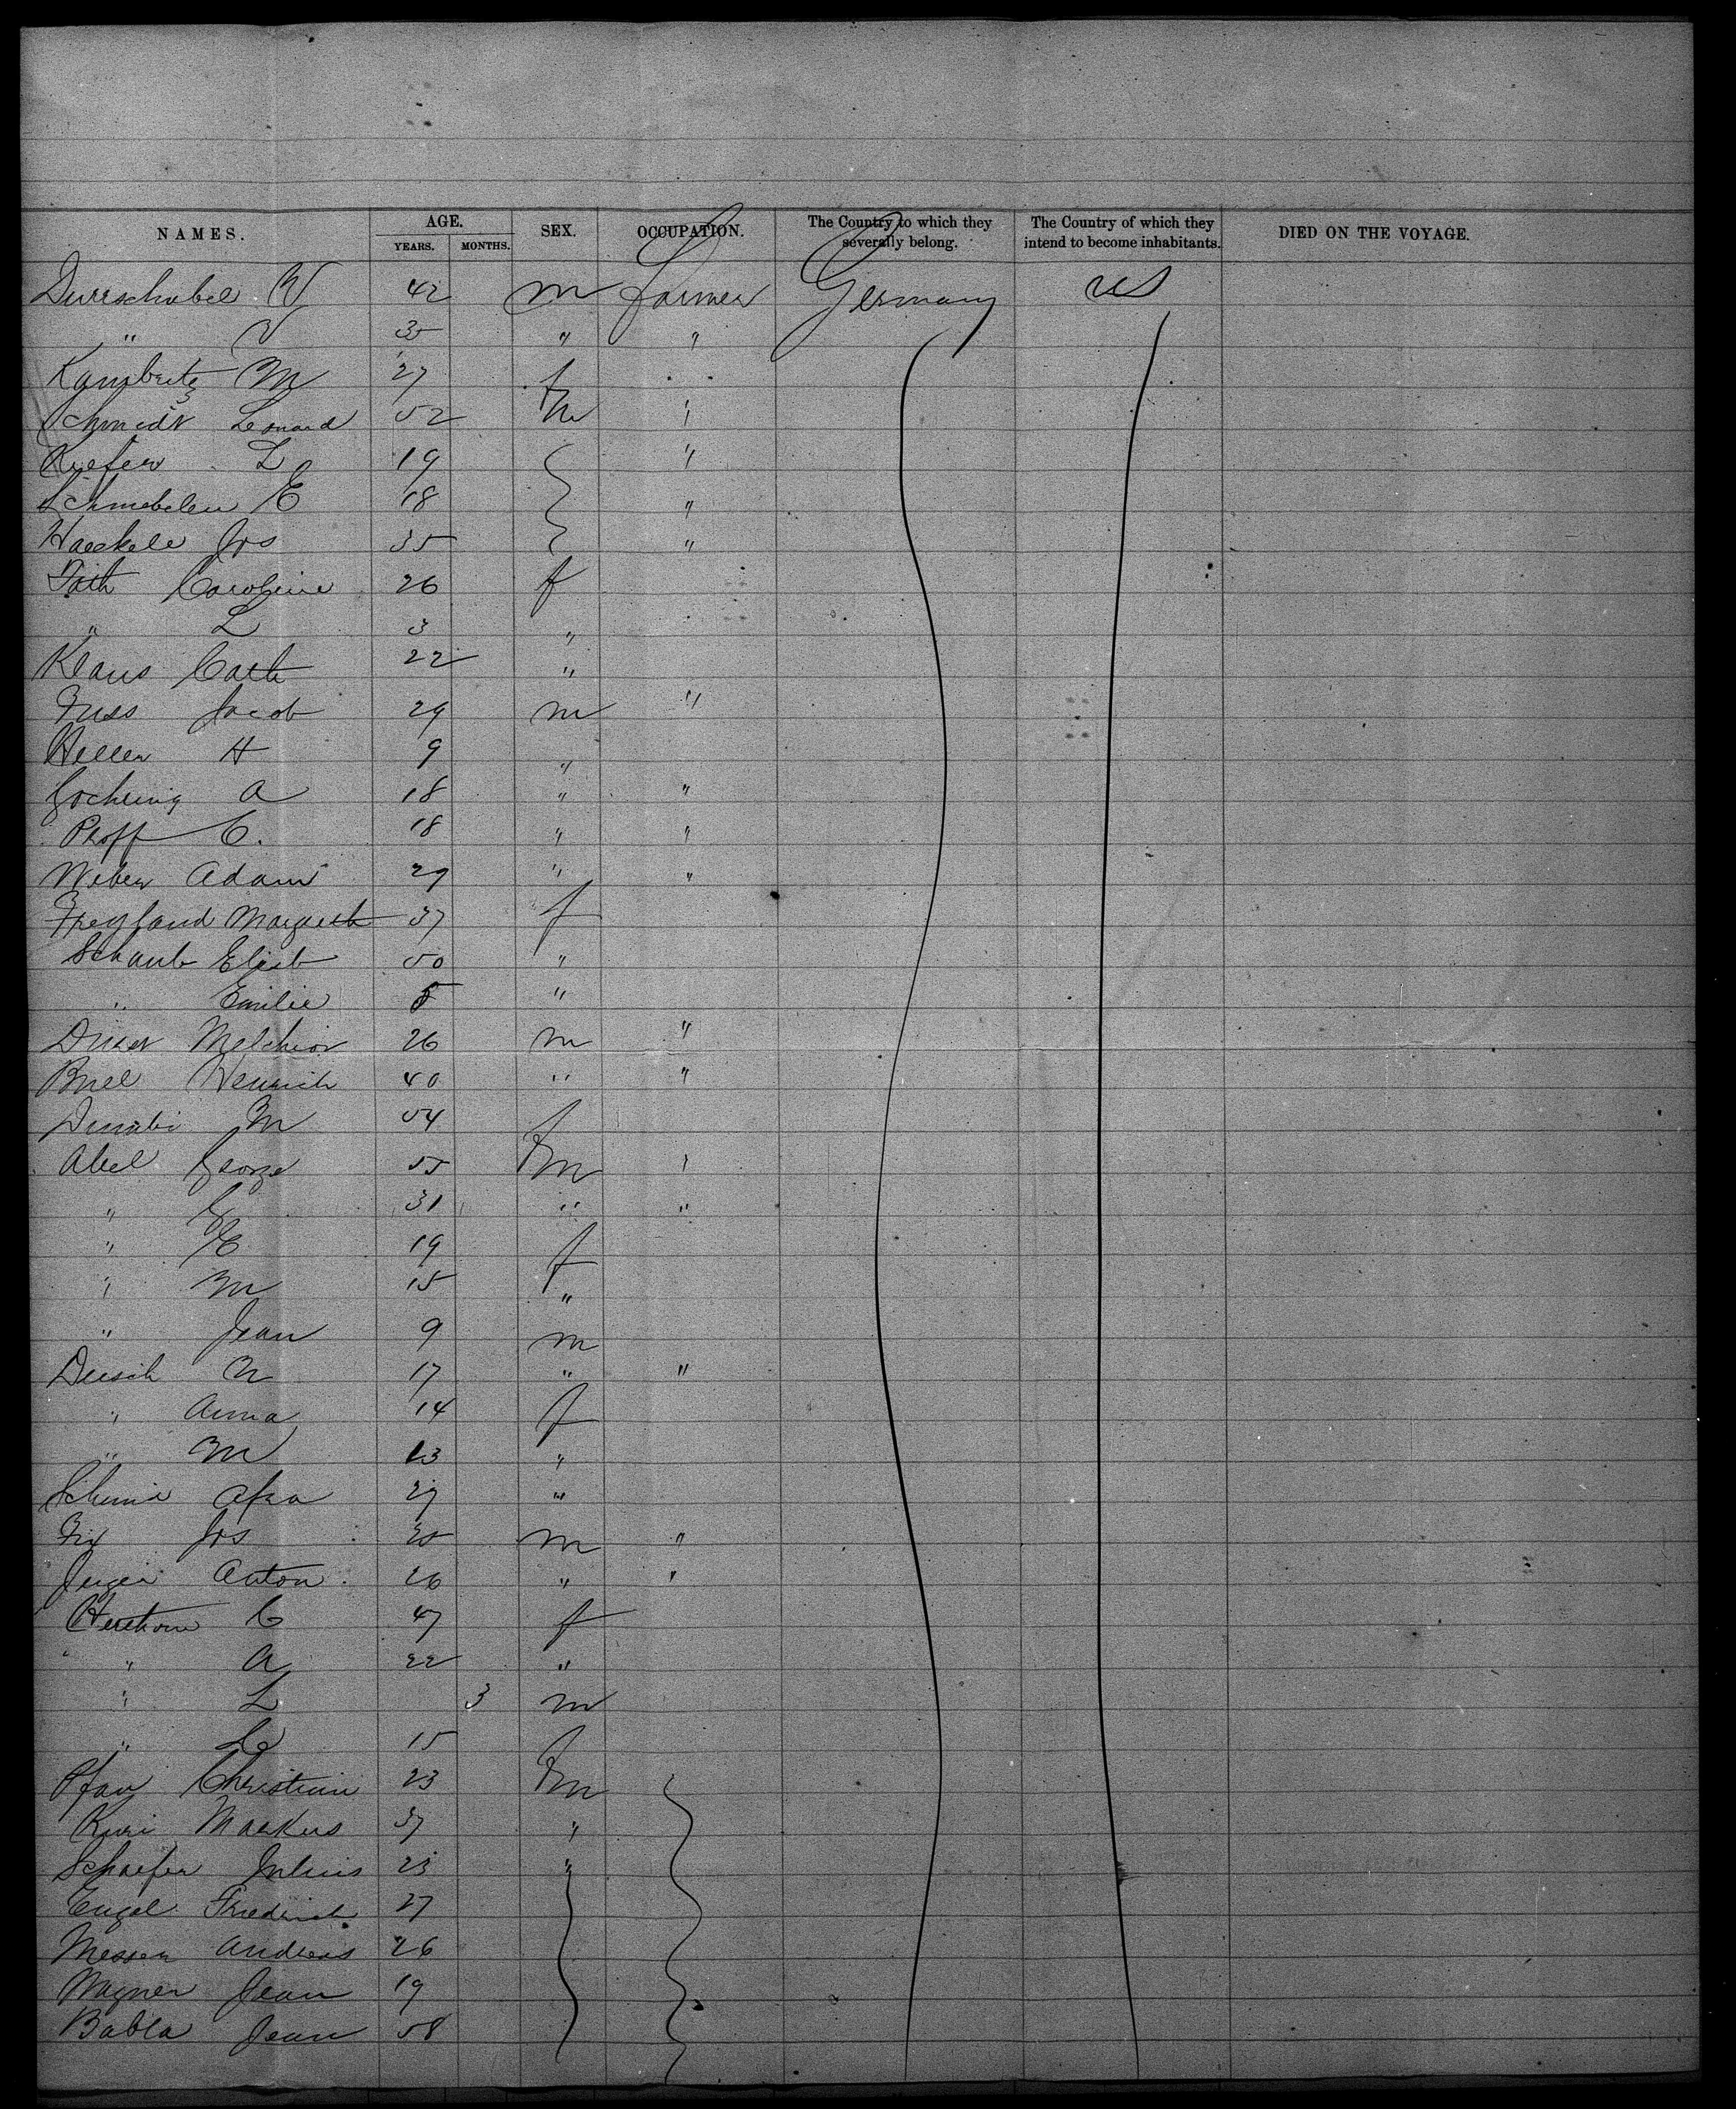 NAMES. AGE. SEX. OCCUPATION. The Country to which they severally belong. The Country of which they intend to become inhabitants. DIED ON THE VOYAGE.
YEARS. MONTHS.
Durrschabel W 42 m Farmer Germany US
" V 35 " "
Kambritz M 27 f
Schmidt Leonard 52 m "
Kiefer L 19 "
Schmebelen E 18 "
Haeckele Jos 35 "
Fath Caroline 26 f
" L 3 "
Klaus Cath 22 "
Fuss Jacob 29 m "
Heller H 9 "
Gochring A 18 " "
Ploff C. 18 " "
Weber Adam 29 " "
Freyland Margareth 37 f
Schaub Elisb 50 "
" Emilie 5 "
Melchior 26 m "
Heinrich 40 " "
M 54 f
Abel George 55 m "
" G 31 " "
" E 19 f
" M 15 "
" Jean 9 m
17 " "
" Anna 14 f
" M 13 "
Schmid Afra 29 "
Fix Jos 20 m "
Anton 26 " "
C 47 f
" A 22 "
" L 3 m
" 15 f
Pfau Christian 23 m
Kuri Markus 37 "
Schaefer Julius 23 "
Engel Friedrich 27
Messer Andreas 26
Wagner Jean 19
Babla Jean 58